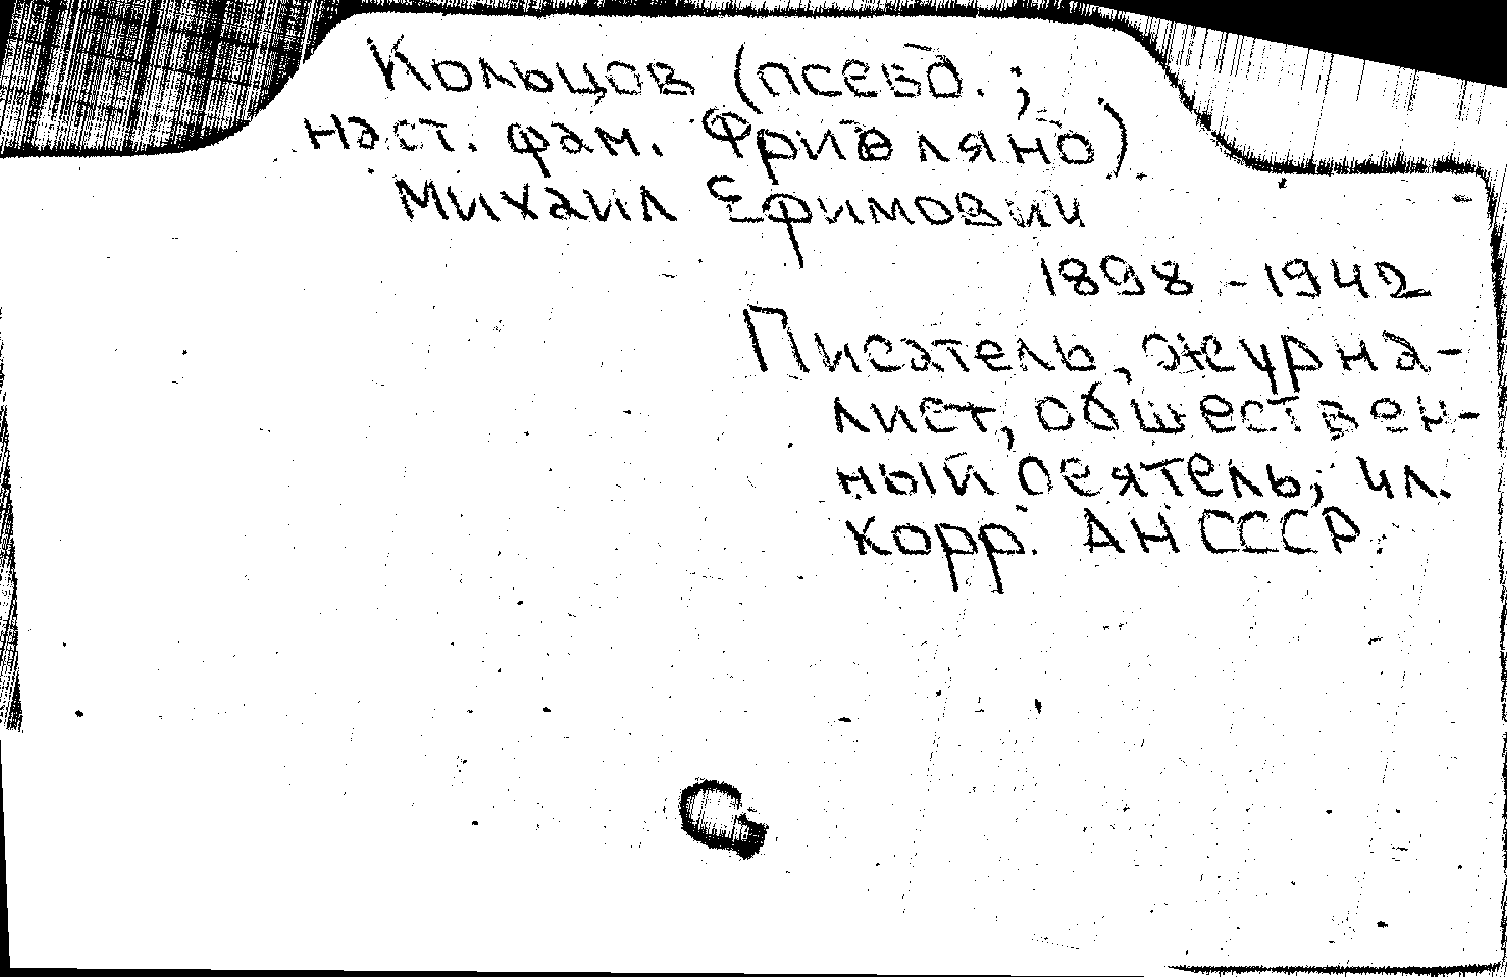 Кольцов (псевд. ;
наст. фам. Фридлянд)
Михаил Ефимович
1898 - 1942
Писатель, журна-
лист, обществен-
ный деятель, чл.
корр. АН СССР.